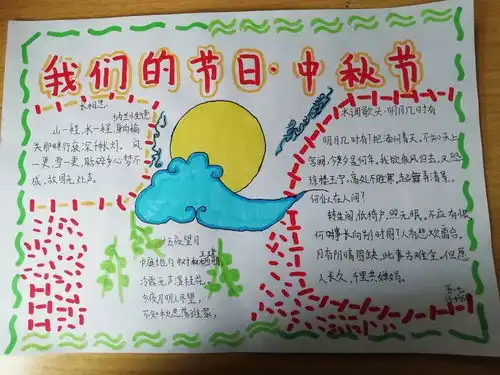 我们的节日·中秋节
长相思
纳兰性德
山一程,水一程,身向榆
关那畔行,夜深千帐灯。风
一更,雪一更,聒碎乡心梦不
成,故园无此声。
十五夜望月
王建
中庭地白树栖鸦,
冷露无声湿桂花。
今夜月明人尽望,
不知秋思落谁家。
水调歌头·明月几时有
明月几时有?把酒问青天。不知天上
宫阙,今夕是何年。我欲乘风归去,又恐
琼楼玉宇,高处不胜寒。起舞弄清影,
何似在人间?
转朱阁,低绮户,照无眠。不应有恨,
何事长向别时圆?人有悲欢离合,
月有阴晴圆缺,此事古难全。但愿
人长久,千里共婵娟。